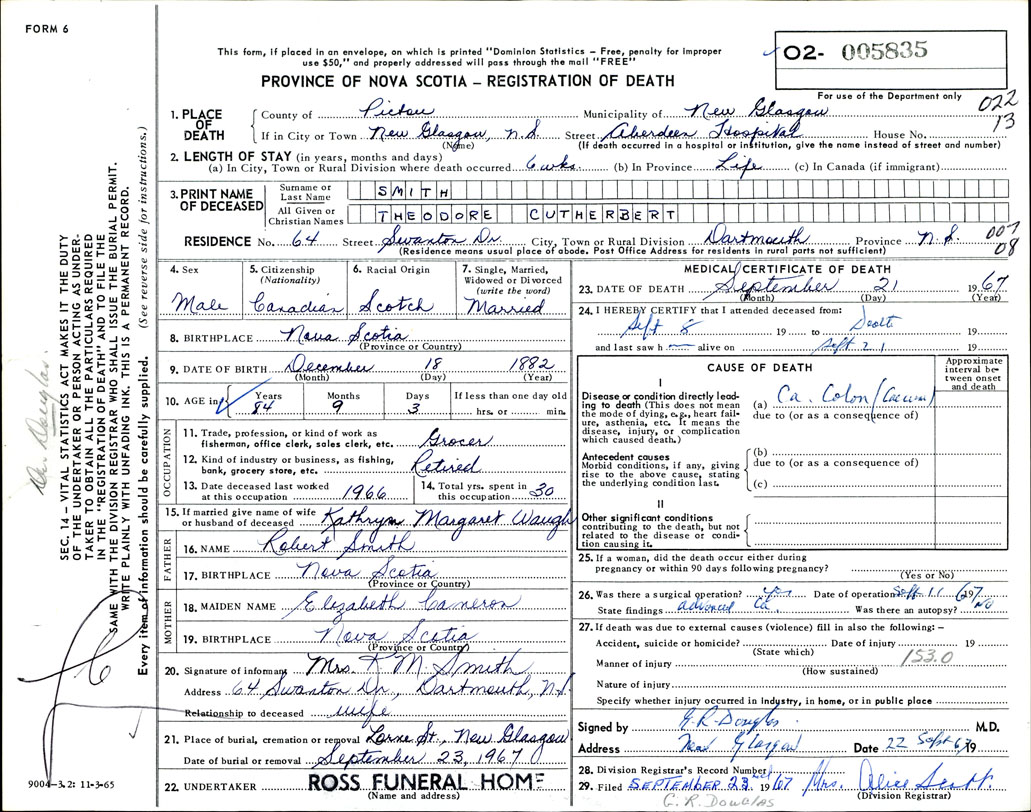 FORM 6
This form, if placed in an envelope, on which is printed "Dominion Statistics – Free, penalty for improper
use $50," and properly addressed will pass through the mail "FREE"
PROVINCE OF NOVA SCOTIA – REGISTRATION OF DEATH
O2- 005835
For use of the Department only
022
13
1. PLACE OF DEATH
County of Pictou Municipality of New Glasgow
If in City or Town New Glasgow, N.S. Street Aberdeen Hospital House No.
(Name) (If death occurred in a hospital or institution, give the name instead of street and number)
2. LENGTH OF STAY (in years, months and days)
(a) In City, Town or Rural Division where death occurred 6 wks. (b) In Province Life (c) In Canada (if immigrant)
3. PRINT NAME OF DECEASED
Surname or Last Name SMITH
All Given or Christian Names THEODORE CUTHERBERT
RESIDENCE No. 64 Street Swanton Dr. City, Town or Rural Division Dartmouth Province N.S.
007
08
(Residence means usual place of abode. Post Office Address for residents in rural parts not sufficient)
4. Sex
Male
5. Citizenship
(Nationality)
Canadian
6. Racial Origin
Scotch
7. Single, Married,
Widowed or Divorced
(write the word)
Married
8. BIRTHPLACE Nova Scotia
(Province or Country)
9. DATE OF BIRTH December 18 1882
(Month) (Day) (Year)
10. AGE in Years Months Days If less than one day old
84 9 3 hrs. or min.
OCCUPATION
11. Trade, profession, or kind of work as
fisherman, office clerk, sales clerk, etc. Grocer
12. Kind of industry or business, as fishing,
bank, grocery store, etc. Retired
13. Date deceased last worked
at this occupation 1966
14. Total yrs. spent in
this occupation 30
15. If married give name of wife
or husband of deceased Kathryn Margaret Waugh
FATHER
16. NAME Robert Smith
17. BIRTHPLACE Nova Scotia
(Province or Country)
MOTHER
18. MAIDEN NAME Elizabeth Cameron
19. BIRTHPLACE Nova Scotia
(Province or Country)
20. Signature of informant Mrs. K M. Smith
Address 64 Swanton Dr., Dartmouth, N.S.
Relationship to deceased wife
21. Place of burial, cremation or removal Lorne St., New Glasgow
Date of burial or removal September 23, 1967
22. UNDERTAKER ROSS FUNERAL HOME
(Name and address)
MEDICAL CERTIFICATE OF DEATH
23. DATE OF DEATH September 21 1967
(Month) (Day) (Year)
24. I HEREBY CERTIFY that I attended deceased from:
Sept 8 19 to Death 19
and last saw h alive on Sept 21 19
CAUSE OF DEATH
Approximate
interval be-
tween onset
and death
I
Disease or condition directly lead-
ing to death (This does not mean
the mode of dying, e.g., heart fail-
ure, asthenia, etc. It means the
disease, injury, or complication
which caused death.)
(a) Ca. Colon (Caecum)
due to (or as a consequence of)
Antecedent causes
Morbid conditions, if any, giving
rise to the above cause, stating
the underlying condition last.
(b)
due to (or as a consequence of)
(c)
II
Other significant conditions
contributing to the death, but not
related to the disease or condi-
tion causing it.
25. If a woman, did the death occur either during
pregnancy or within 90 days following pregnancy?
(Yes or No)
26. Was there a surgical operation? yes Date of operation Sept 11 1967
State findings advanced Ca. Was there an autopsy? No
27. If death was due to external causes (violence) fill in also the following: –
Accident, suicide or homicide? Date of injury 19
(State which)
153.0
Manner of injury
(How sustained)
Nature of injury
Specify whether injury occurred in Industry, in home, or in public place
Signed by G.R. Douglas M.D.
Address New Glasgow Date 22 Sept 67 19
28. Division Registrar's Record Number
29. Filed SEPTEMBER 23rd 1967 Mrs. Alice Scott
(Division Registrar)
G. R. Douglas
SEC. 14 – VITAL STATISTICS ACT MAKES IT THE DUTY
OF THE UNDERTAKER OR PERSON ACTING AS UNDER-
TAKER TO OBTAIN ALL THE PARTICULARS REQUIRED
IN THE "REGISTRATION OF DEATH" AND TO FILE THE
SAME WITH THE DIVISION REGISTRAR WHO SHALL ISSUE THE BURIAL PERMIT.
WRITE PLAINLY WITH UNFADING INK. THIS IS A PERMANENT RECORD.
Every item of information should be carefully supplied. (See reverse side for instructions.)
Dr. Douglas
9004–3.2: 11-3-65